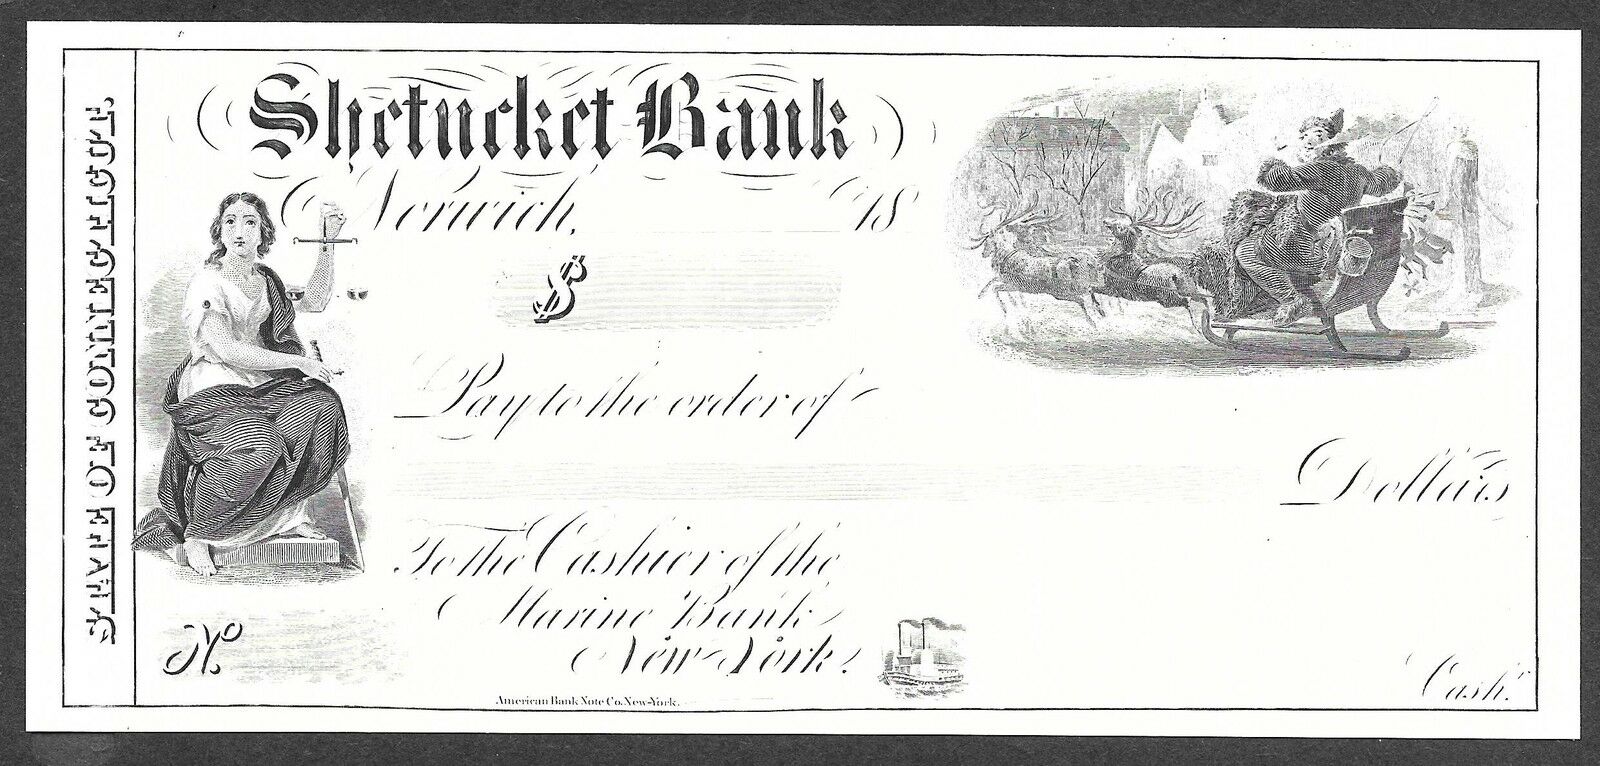 STATE OF CONNECTICUT.
Shetucket Bank
Norwich, 18
$
Pay to the order of
Dollars
To the Cashier of the
Marine Bank
New-York.
No
Cashr.
American Bank Note Co. New-York.